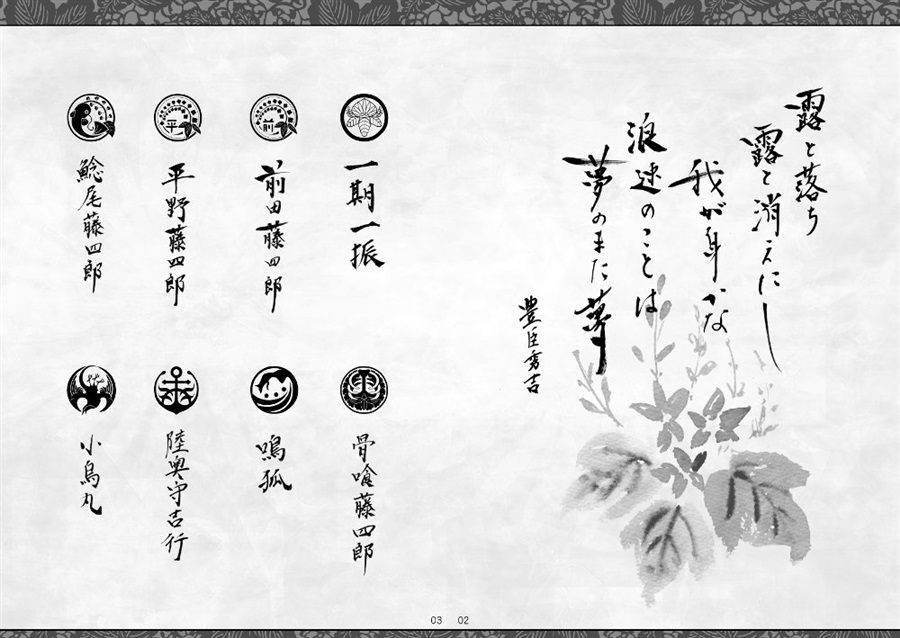 露と落ち
露と消えにし
我が身かな
浪速のことは
夢のまた夢
豊臣秀吉
一期一振
前
前田藤四郎
平
平野藤四郎
鯰尾藤四郎
骨喰藤四郎
鳴狐
陸奥守吉行
小烏丸
03 02